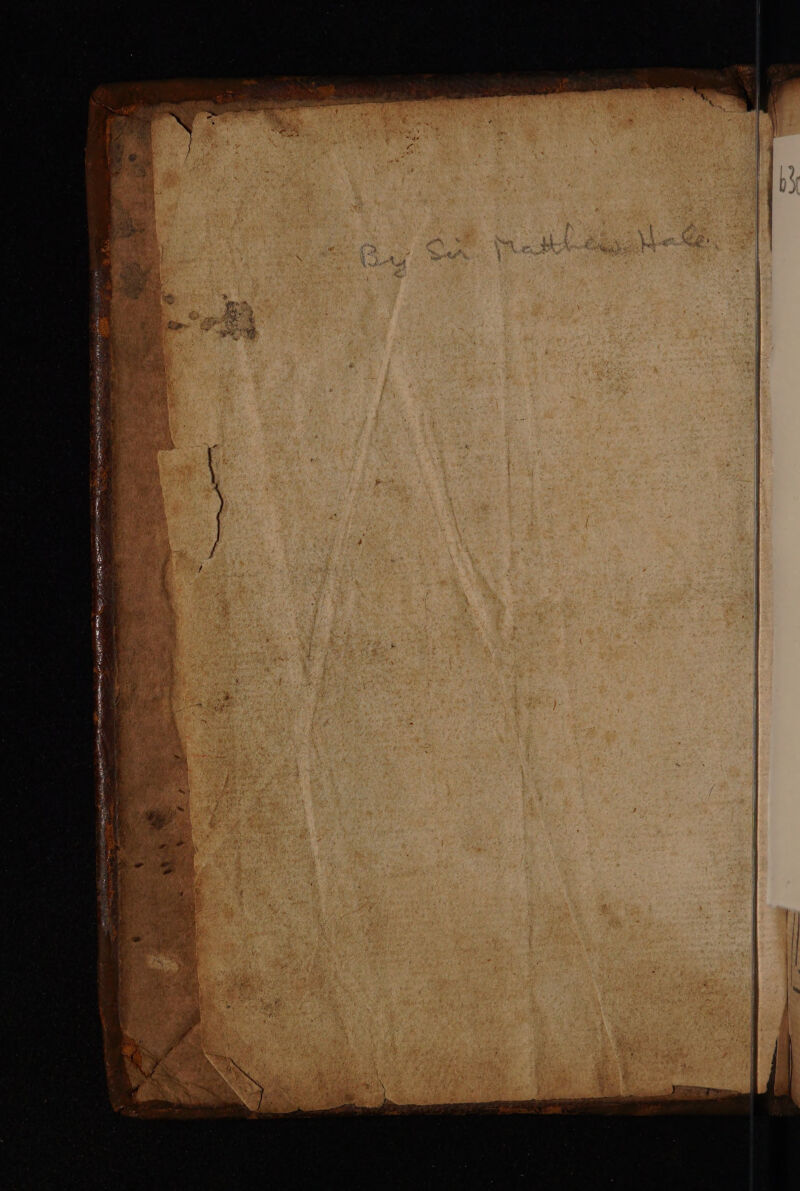 By Sir Matthew Hale.